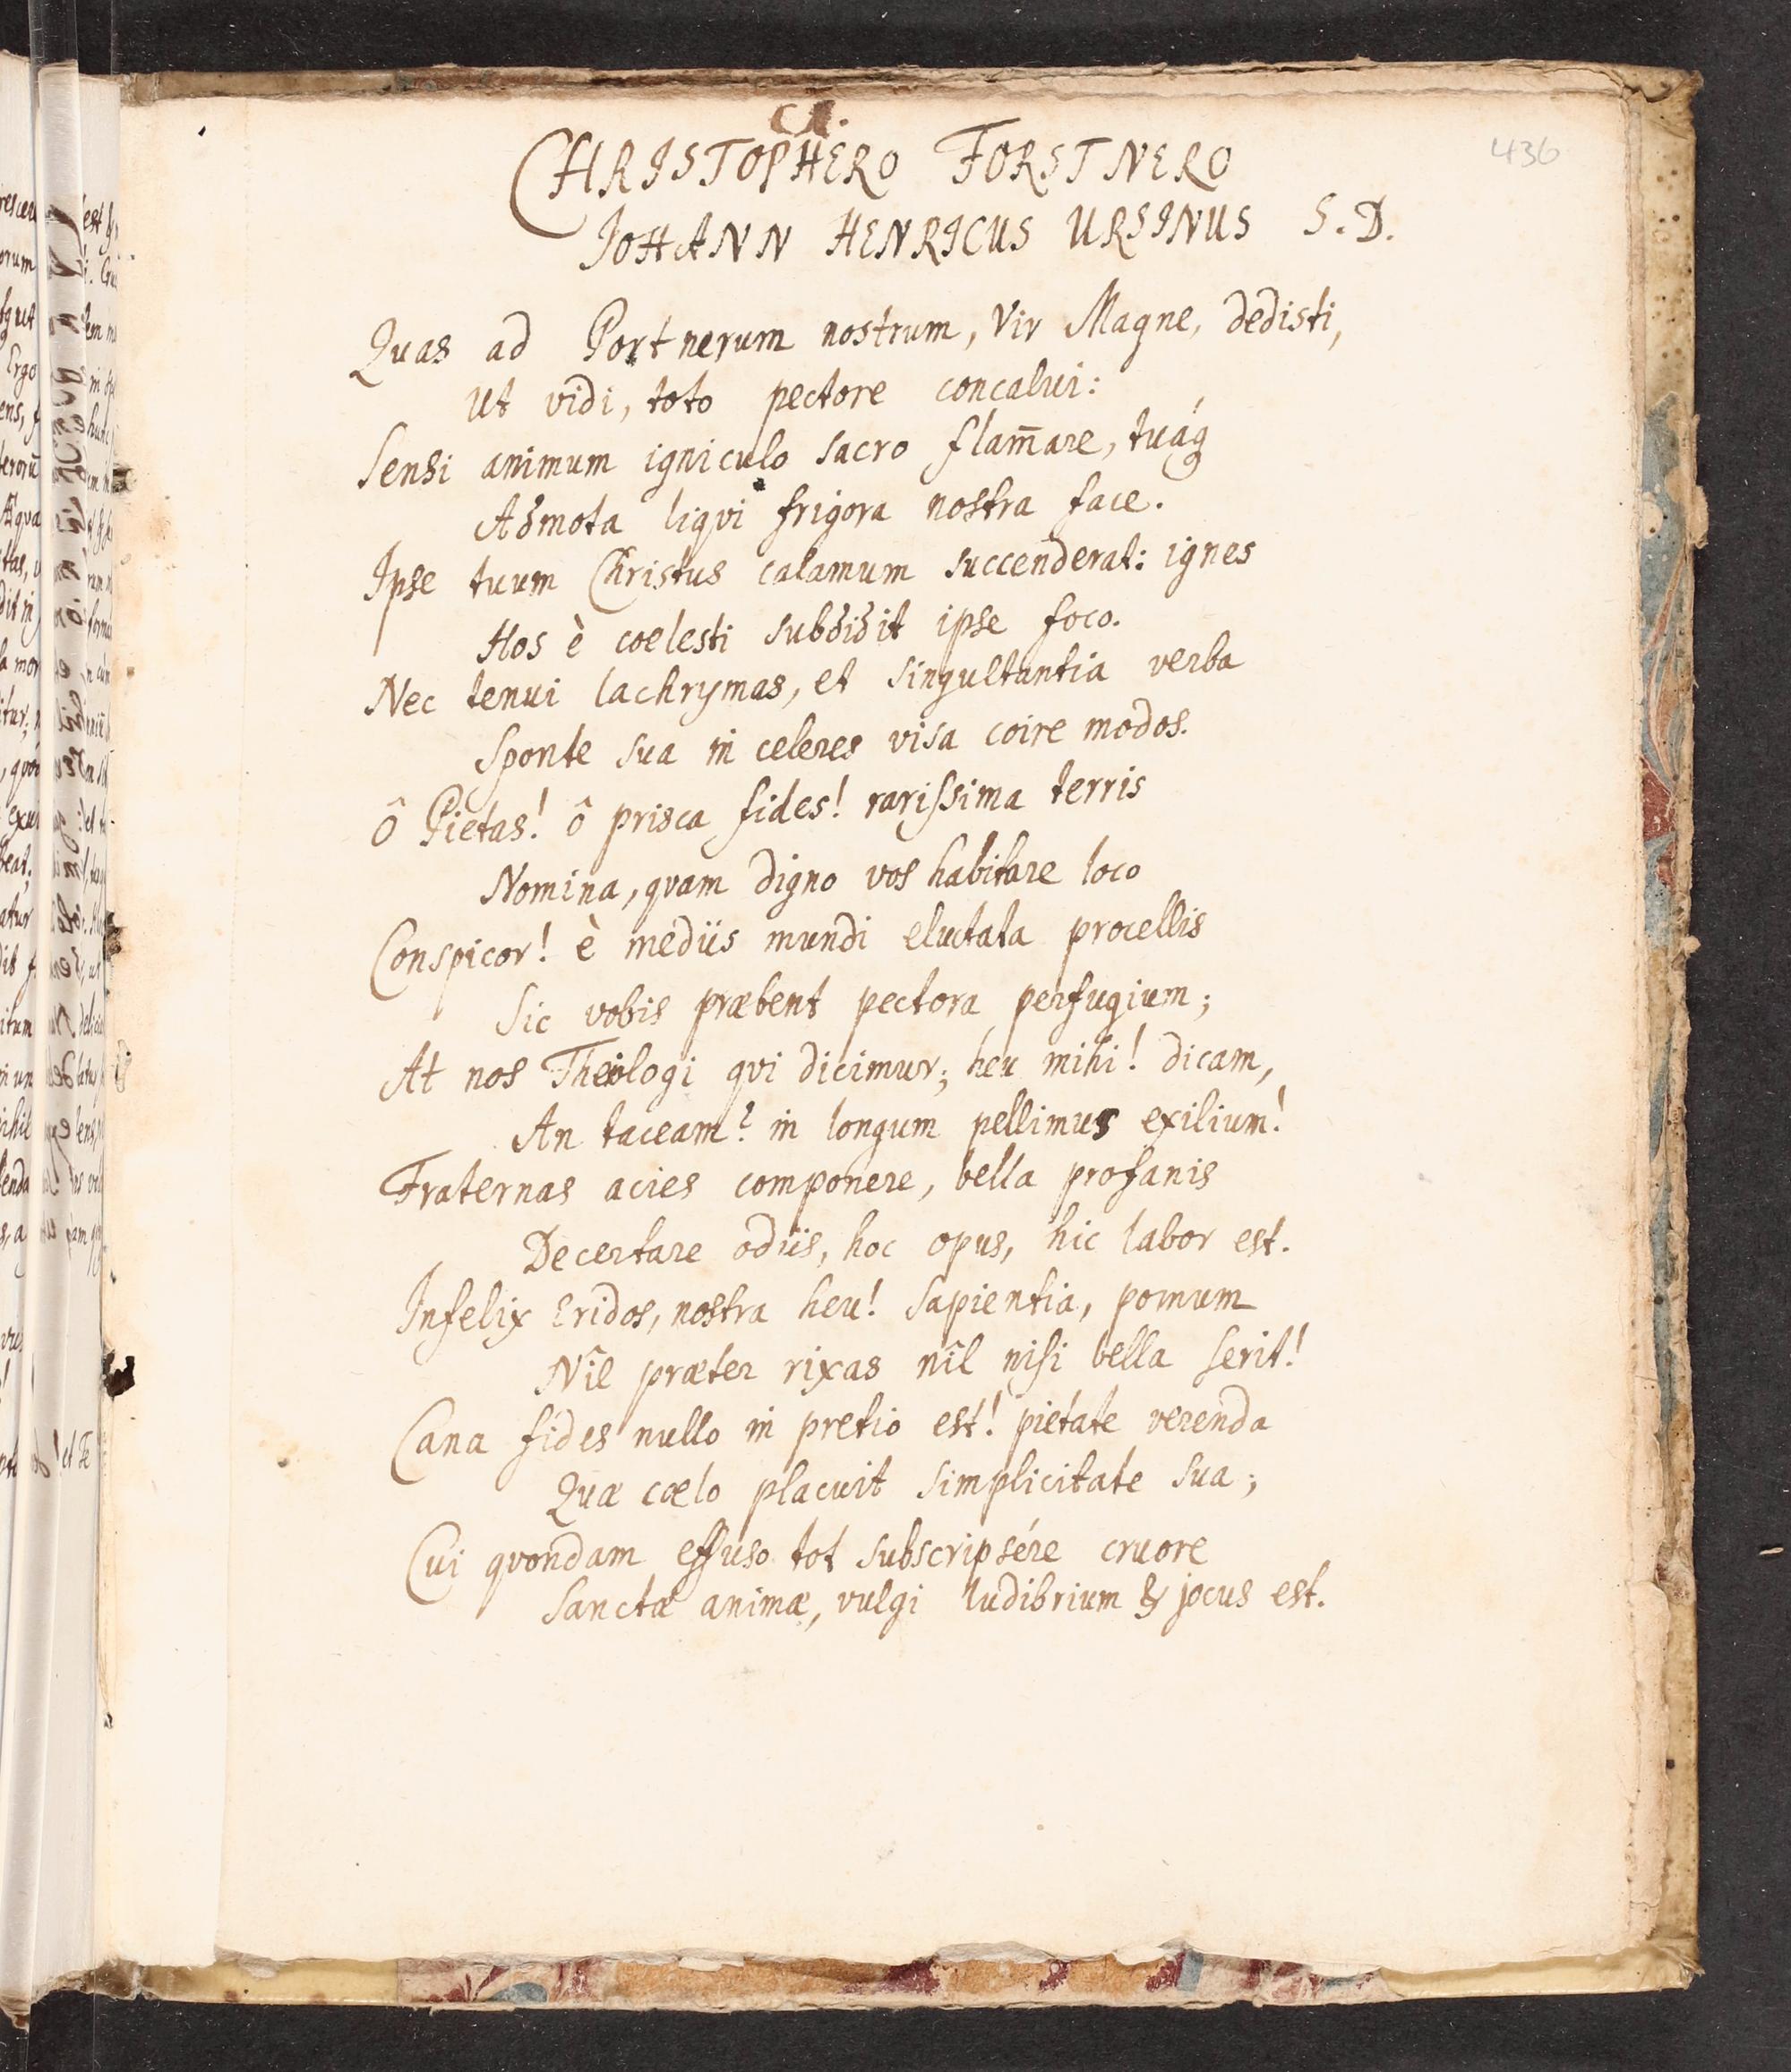 Cl.
436
CHRISTOPHERO FORSTNERO
JOHANN HENRICUS URSINUS S. D.
Quas ad Portnerum nostrum, Vir Magne, dedisti,
Ut vidi, toto pectore concalui:
Sensi animum igniculo sacro flam̄are, tuáq
Admota liqvi frigora nostra face.
Ipse tuum Christus calamum succenderat: ignes
Hos è coelesti subdidit ipse foco.
Nec tenui lachrymas, et singultantia verba
Sponte sua in celeres visa coire modos.
Ô Pietas! ô prisca fides! rarissima terris
Nomina, qvam digno vos habitare loco
Conspicor! è mediis mundi eluctata procellis
Sic vobis præbent pectora perfugium;
At nos Theologi qvi dicimur; heu mihi! dicam,
An taceam? in longum pellimus exilium!
Fraternas acies componere, bella profanis
Decertare odiis, hoc opus, hic labor est.
Infelix Eridos, nostra heu! Sapientia, pomum
Nîl præter rixas nîl nisi bella serit!
Cana fides nullo in pretio est! pietate verenda
Quæ coelo placuit simplicitate sua;
Cui qvondam effuso tot subscripsére cruore
Sanctæ animæ, vulgi ludibrium & jocus est.